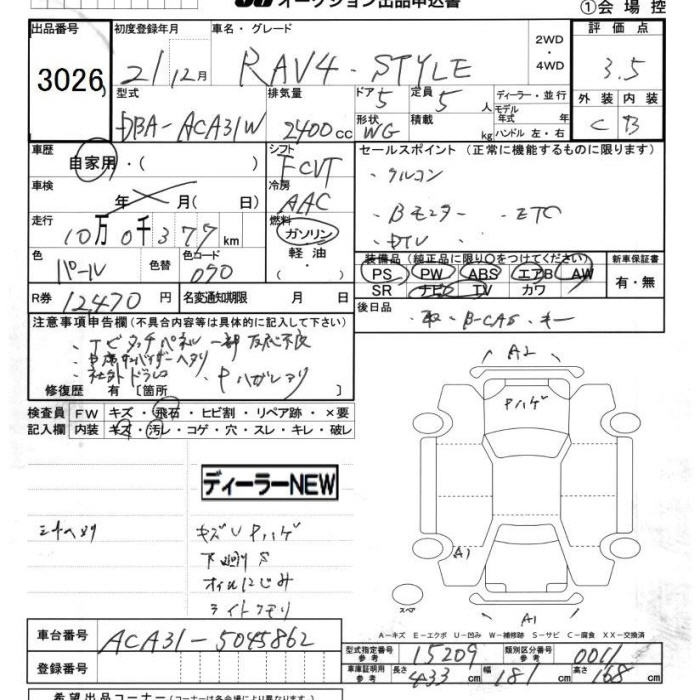 オークション出品申込書
①会場控
出品番号 初度登録年月 車名・グレード 2WD・4WD 評価点
3026 21/12月 RAV4・STYLE 3.5
型式 排気量 ドア 5 定員 5人 ディーラー・並行 外装 内装
DBA-ACA31W 2400cc 形状 WG 積載 kg モデル年式 年 ハンドル 左・右 C B
車歴 自家用・( ) シフト FCVT セールスポイント (正常に機能するものに限ります)
車検 年 月( 日) 冷房 AAC ・アルコン
・Bモニター ・ETC
走行 10万0千377km 燃料 ガソリン 軽油・ ・DTV
色 パール 色替 色コード 070
装備品 (純正品に限り○をつけてください) 新車保証書
PS PW ABS エアB AW 有・無
SR ナビ TV カワ
R券 12470円 名変通知期限 月 日
後日品 ・取・B-CAS・キー
注意事項申告欄 (不具合内容等は具体的に記入して下さい)
・TVタッチパネル一部反応不良
・社外ドラレコ
修復歴 有〔箇所
検査員 FW キズ・飛石・ヒビ割・リペア跡・×要
記入欄 内装 キズ・汚レ・コゲ・穴・スレ・キレ・破レ
A2
Pハゲ
ディーラーNEW
キズU Pハゲ
下廻りS
オイルにじみ
ライトクモリ
A1
スペア
A1
A－キズ E－エクボ U－凹み W－補修跡 S－サビ C－腐食 XX－交換済
車台番号 ACA31-5045862
型式指定番号 参考 15209 類別区分番号 参考 0011
登録番号
車庫証明用 参考 長さ 433cm 幅 181cm 高さ 168cm
希望出品コーナー (コーナーは各会場により異なります)